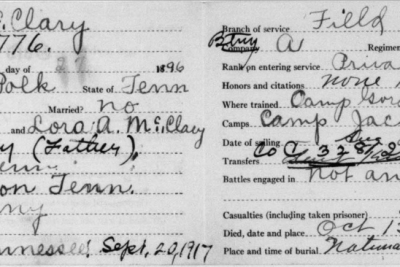 c. Clary
776.
day of 27 1896
Polk State of Tenn
Married? No
and Lora A. McClary
y (Father)
on Tenn.
ny
nnessee! Sept. 20, 1917
Branch of service Field
Btry Company A Regimen
Rank on entering service Priva
Honors and citations none
Where trained Camp Gor
Camps Camp Jac
Date of sailing
Transfers Co C 328
Battles engaged in Not an
Casualties (including taken prisoner)
Died, date and place Oct 13
Place and time of burial. Nationa